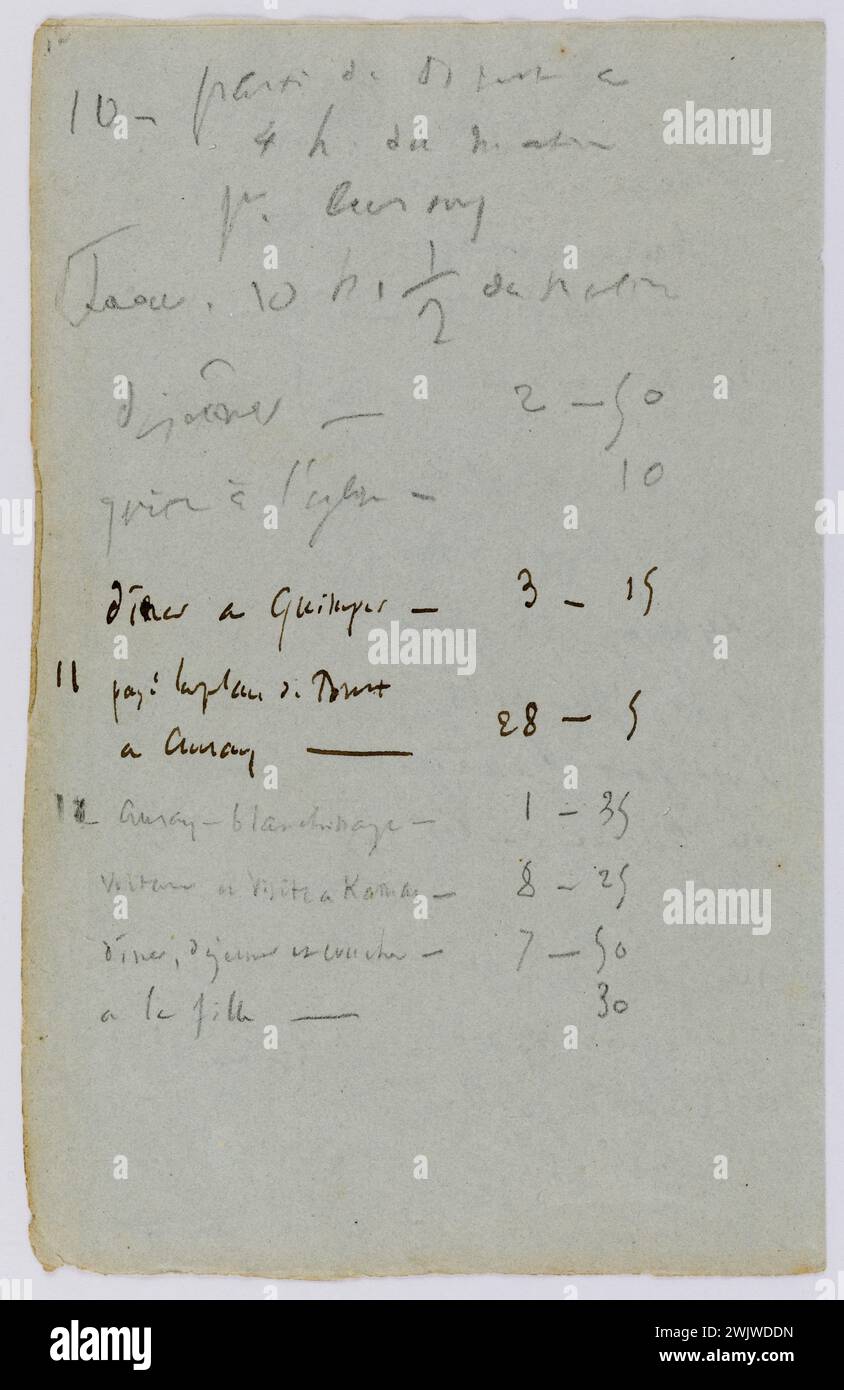 10 - parti de Brest a
4 h. du matin
pr. Auray
10 h. 1/2 du matin
déjeûner — 2 - 50
quête à l'église - 10
dîner a Quimper - 3 - 15
11 payé la place de Brest
a Auray — 28 - 5
12 - Auray - blanchissage - 1 - 35
voiture et visite a Karnac - 8 - 25
dîner, déjeuner et coucher - 7 - 50
a la fille — 30
alamy
alamy
a
alamy
Image ID: 2WJWDDN
www.alamy.com